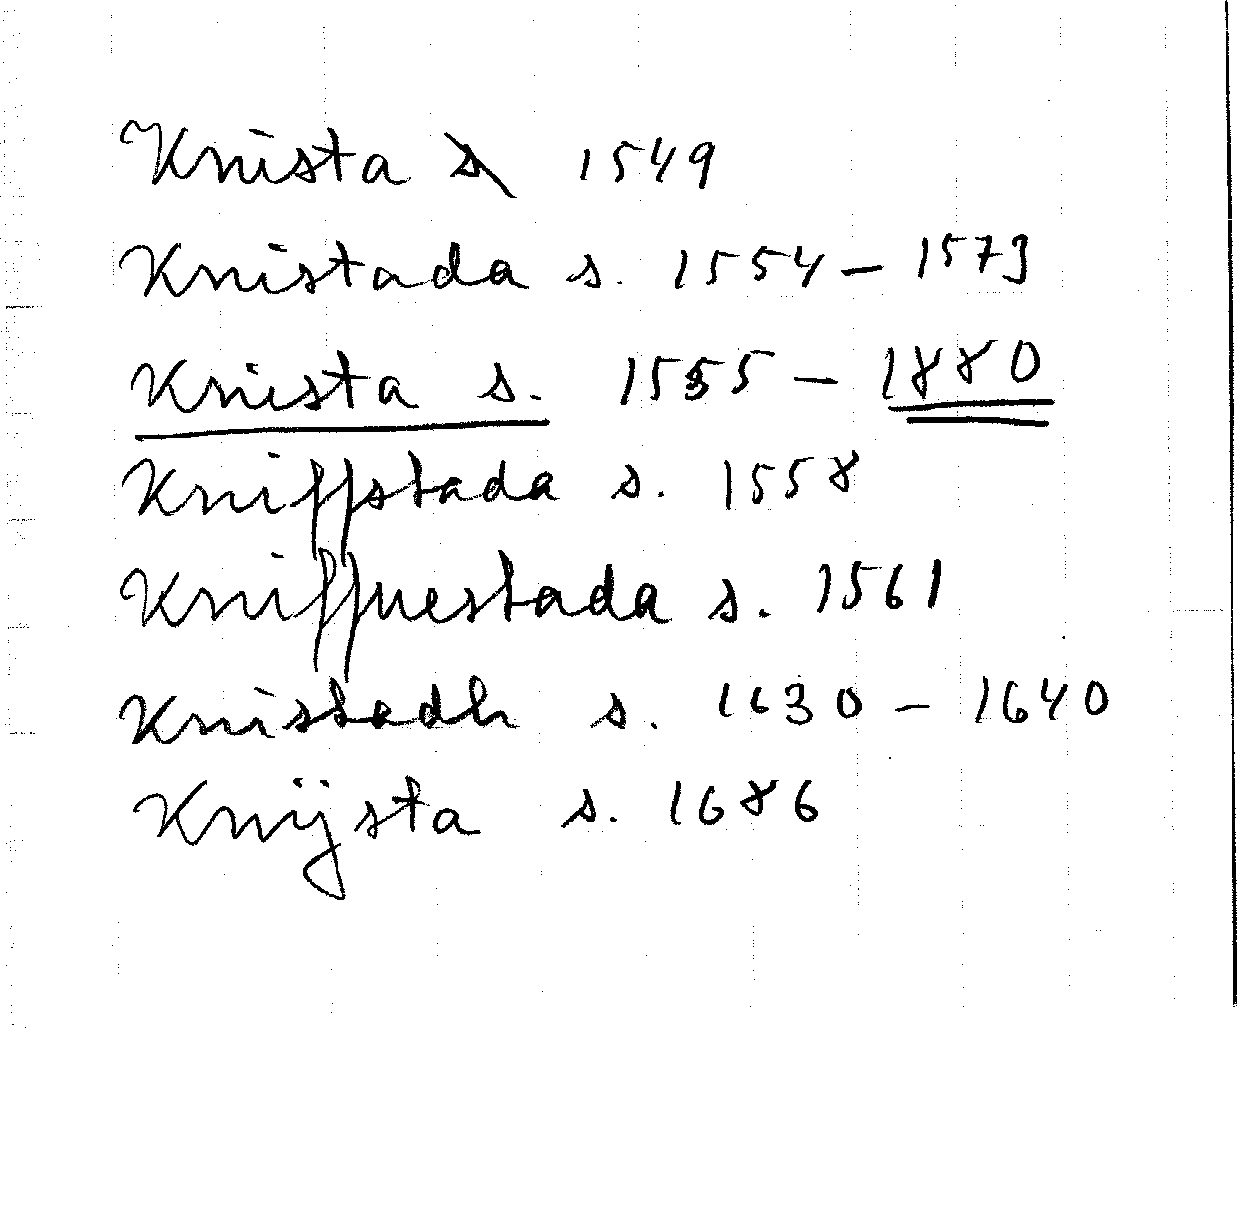 Knista s 1549
Knistada s. 1554 – 1573
Knista s. 1555 – 1880
Kniffstada s. 1558
Kniffuestada s. 1561
Knistadh s. 1630 – 1640
Knijsta s. 1686